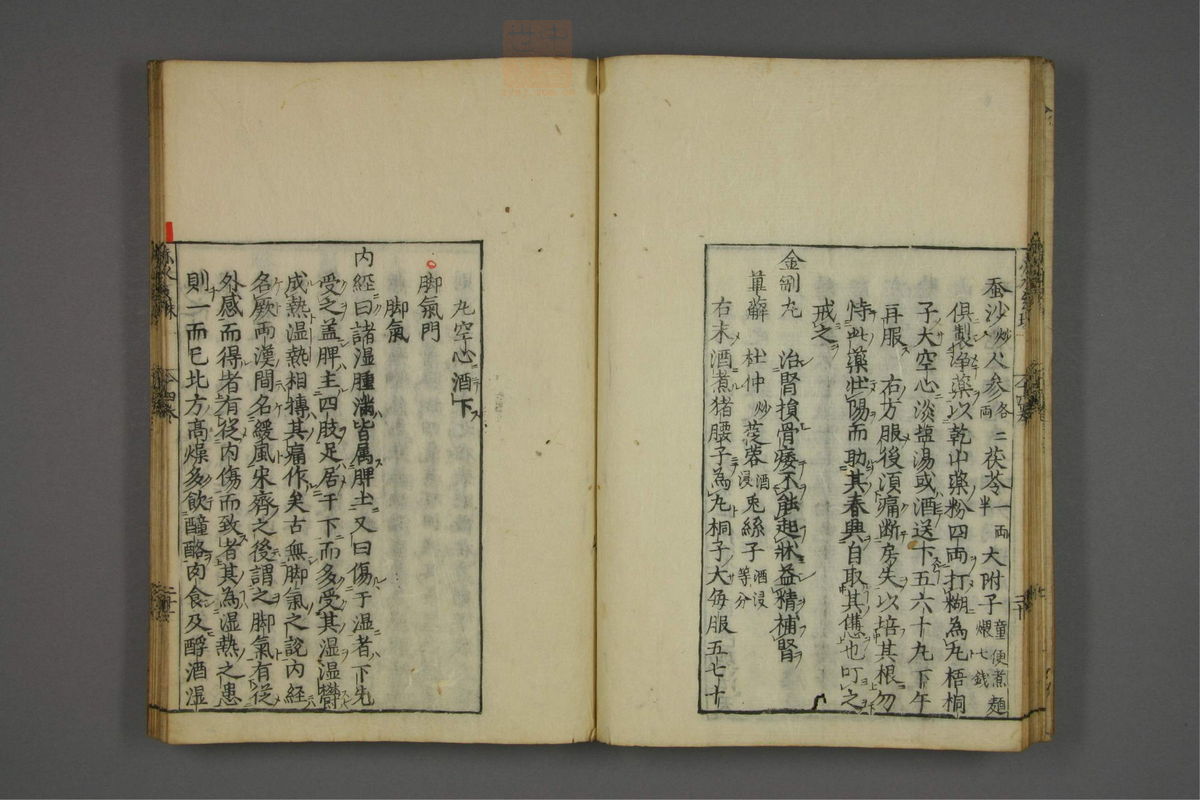 蚕沙炒人参各二茯苓一兩大附子童便煮麵
俱製净藥以乾山藥粉四両打糊為丸梧桐
子大空心淡塩湯或酒送下五六十丸下午
再服 右方服後湏痛断房失以培其根勿
恃此藥壮陽而助其春興自取其僁也叮之
戒之
金剛丸 治腎損骨痿不能起牀益精補腎
萆薢 杜仲炒 蓯蓉酒浸 兎絲子酒浸等分
右末酒煮猪腰子為丸桐子大毎服五七十
丸空心酒下
脚氣門
脚氣
内經曰諸湿腫滿皆属脾土又曰傷于湿者下先
受之盖脾主四肢足居于下而多受其湿湿鬱
成熱湿熱相摶其痛作矣古無脚氣之説内經
名厥両漢間名緩風宋齊之後謂之脚氣有從
外感而得者有從内傷而致者其為湿熱之患
則一而已北方高燥多飲醯酪肉食及醇酒湿